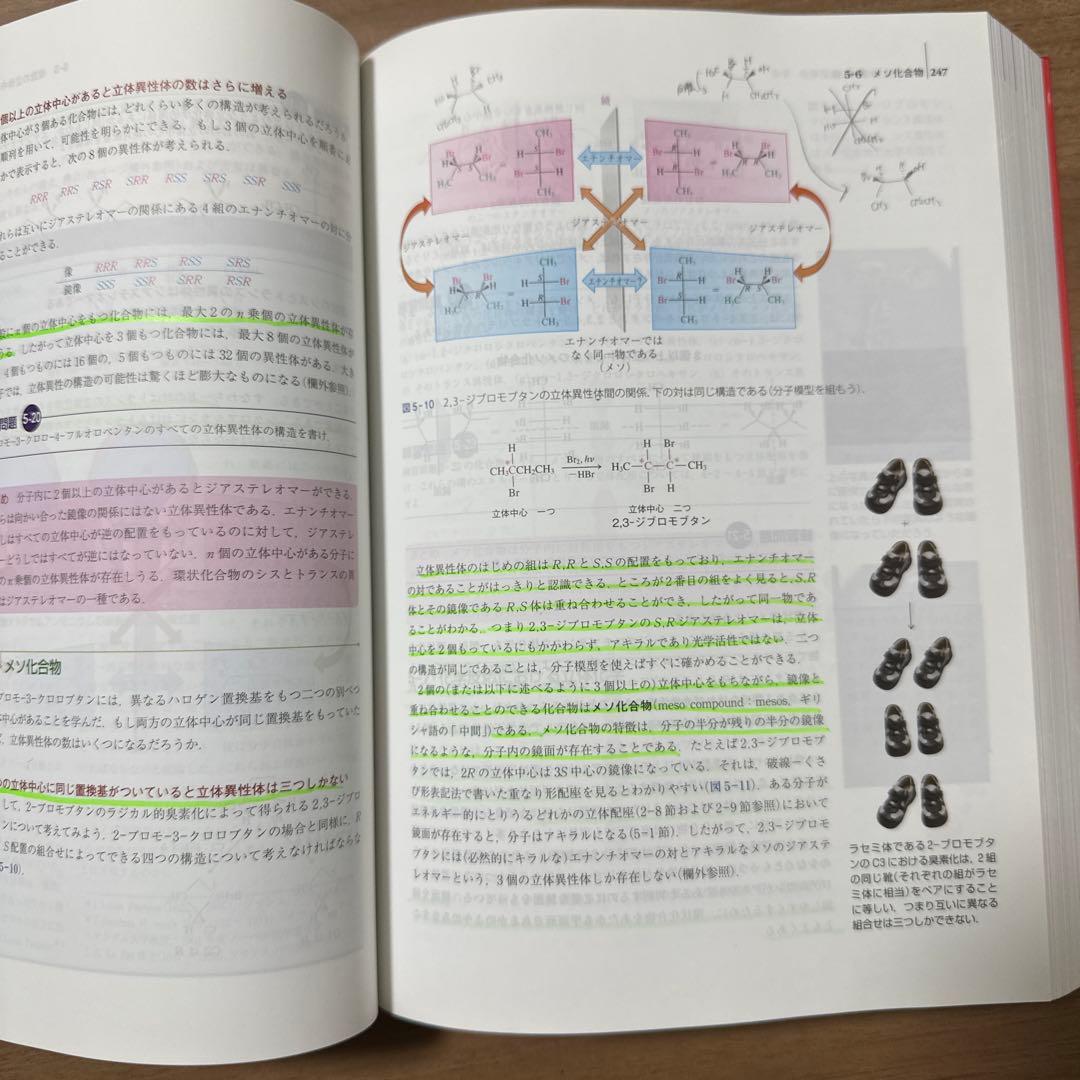 個以上の立体中心があると立体異性体の数はさらに増える
体中心が3個ある化合物には,どれくらい多くの構造が考えられるだろう
順列を用いて,可能性を明らかにできる.もし3個の立体中心を順番に
かで表示すると,次の8個の異性体が考えられる.
RRR RRS RSR SRR RSS SRS SSR SSS
れらは互いにジアステレオマーの関係にある4組のエナンチオマーの対に分
ることができる.
像 RRR RRS RSS SRS
鏡像 SSS SSR SRR RSR
般にn個の立体中心をもつ化合物には,最大2のn乗個の立体異性体が
うる.したがって立体中心を3個もつ化合物には,最大8個の立体異性体が
4個もつものには16個の,5個もつものには32個の異性体がある.大き
子では,立体異性の構造の可能性は驚くほど膨大なものになる(欄外参照).
問題 5-20
ロモ-3-クロロ-4-フルオロペンタンのすべての立体異性体の構造を書け.
め 分子内に2個以上の立体中心があるとジアステレオマーができる.
らは向かい合った鏡像の関係にはない立体異性体である.エナンチオマー
しはすべての立体中心が逆の配置をもっているのに対して,ジアステレ
ーどうしではすべてが逆にはなっていない.n個の立体中心がある分子に
のn乗個の立体異性体が存在しうる.環状化合物のシスとトランスの異
はジアステレオマーの一種である.
メソ化合物
ブロモ-3-クロロブタンには,異なるハロゲン置換基をもつ二つの別べつ
本中心があることを学んだ.もし両方の立体中心が同じ置換基をもっていた
ば,立体異性体の数はいくつになるだろうか.
つの立体中心に同じ置換基がついていると立体異性体は三つしかない
として,2-ブロモブタンのラジカル的臭素化によって得られる2,3-ジブロ
ンについて考えてみよう.2-ブロモ-3-クロロブタンの場合と同様に,R
S配置の組合せによってできる四つの構造について考えなければならな
5-10).
5-6 メソ化合物 247
鏡
エナンチオマー
ジアステレオマー
ジアステレオマー
ジアステレオマー
エナンチオマー?
エナンチオマーでは
なく同一物である
(メソ)
図5-10 2,3-ジブロモブタンの立体異性体間の関係.下の対は同じ構造である(分子模型を組もう).
H
CH₃CCH₂CH₃
Br
Br₂, hν
−HBr
H Br
H₃C—C—C—CH₃
Br H
立体中心 一つ
立体中心 二つ
2,3-ジブロモブタン
立体異性体のはじめの組はR,RとS,Sの配置をもっており,エナンチオマー
の対であることがはっきりと認識できる.ところが2番目の組をよく見ると,S,R
体とその鏡像であるR,S体は重ね合わせることができ,したがって同一物であ
ることがわかる.つまり2,3-ジブロモブタンのS,Rジアステレオマーは,立体
中心を2個もっているにもかかわらず,アキラルであり光学活性ではない.二つ
の構造が同じであることは,分子模型を使えばすぐに確かめることができる.
2個の(または以下に述べるように3個以上の)立体中心をもちながら,鏡像と
重ね合わせることのできる化合物はメソ化合物(meso compound:mesos, ギリ
シャ語の「中間」)である.メソ化合物の特徴は,分子の半分が残りの半分の鏡像
になるような,分子内の鏡面が存在することである.たとえば2,3-ジブロモブ
タンでは,2Rの立体中心は3S中心の鏡像になっている.それは,破線-くさ
び形表記法で書いた重なり形配座を見るとわかりやすい(図5-11).ある分子が
エネルギー的にとりうるどれかの立体配座(2-8節および2-9節参照)において
鏡面が存在すると,分子はアキラルになる(5-1節).したがって,2,3-ジブロモ
ブタンには(必然的にキラルな)エナンチオマーの対とアキラルなメソのジアステ
レオマーという,3個の立体異性体しか存在しない(欄外参照).
ラセミ体である2-ブロモブタ
ンのC3における臭素化は,2組
の同じ靴(それぞれの組がラセ
ミ体に相当)をペアにすること
に等しい.つまり互いに異なる
組合せは三つしかできない.